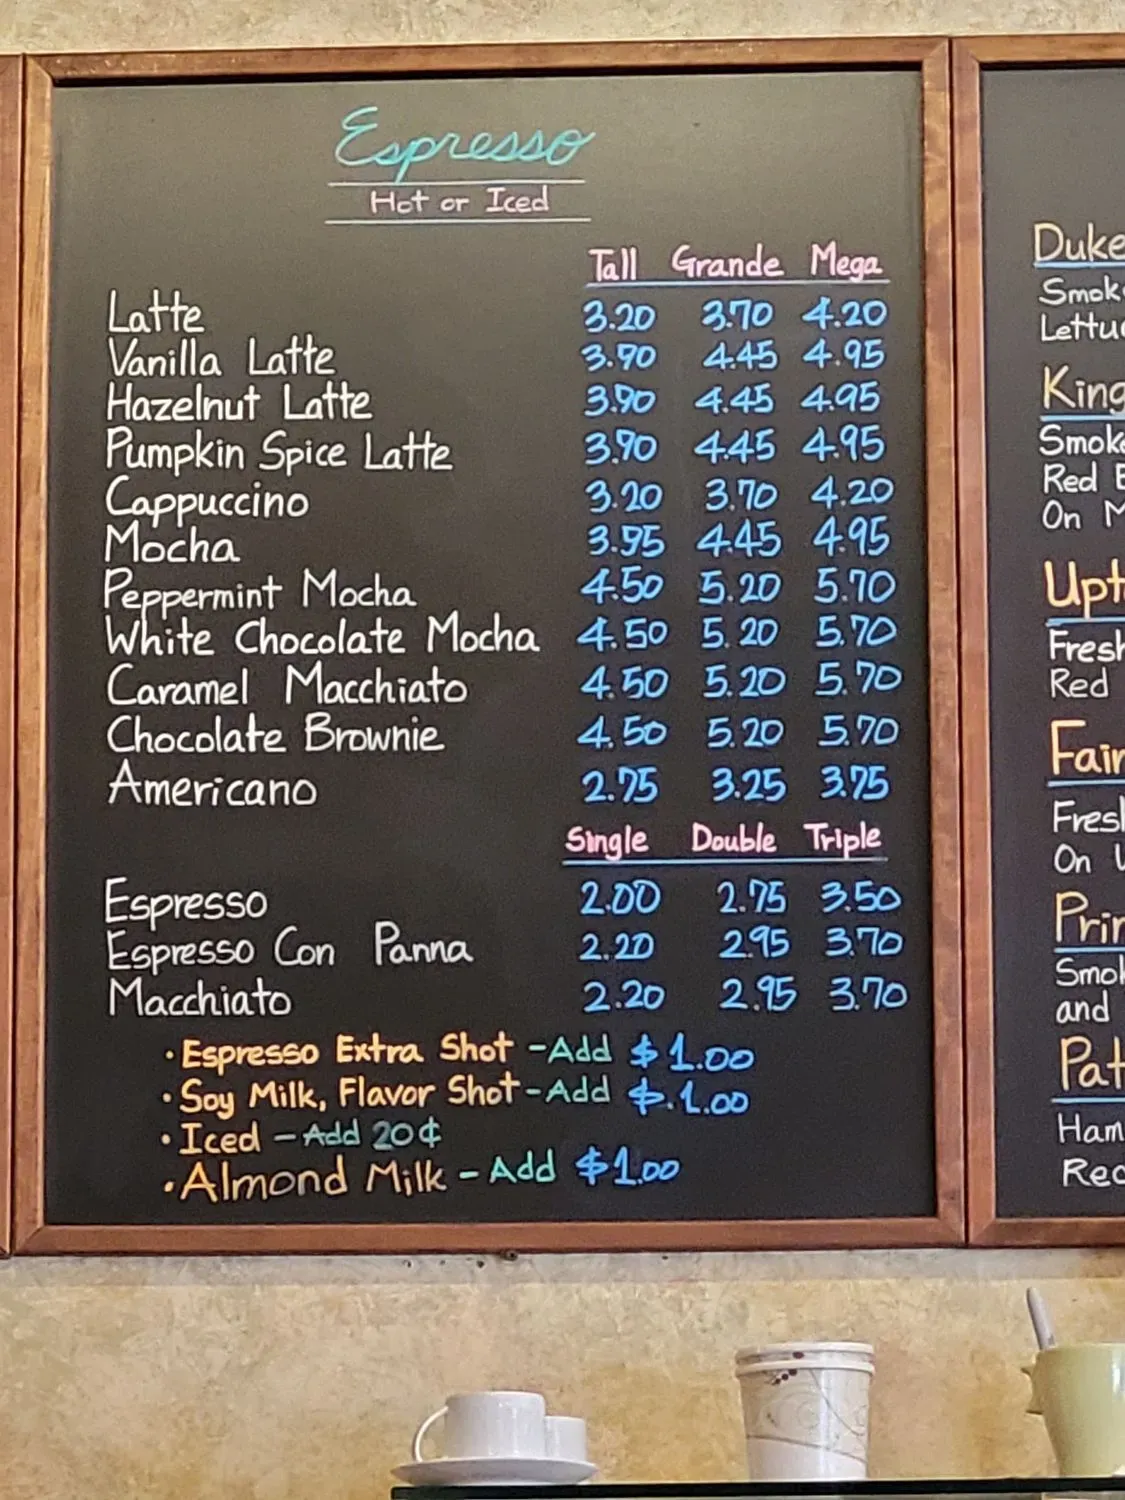 Espresso
Hot or Iced
Tall Grande Mega
Latte 3.20 3.70 4.20
Vanilla Latte 3.90 4.45 4.95
Hazelnut Latte 3.90 4.45 4.95
Pumpkin Spice Latte 3.90 4.45 4.95
Cappuccino 3.20 3.70 4.20
Mocha 3.95 4.45 4.95
Peppermint Mocha 4.50 5.20 5.70
White Chocolate Mocha 4.50 5.20 5.70
Caramel Macchiato 4.50 5.20 5.70
Chocolate Brownie 4.50 5.20 5.70
Americano 2.75 3.25 3.75
Single Double Triple
Espresso 2.00 2.75 3.50
Espresso Con Panna 2.20 2.95 3.70
Macchiato 2.20 2.95 3.70
• Espresso Extra Shot - Add $1.00
• Soy Milk, Flavor Shot - Add $.1.00
• Iced - Add 20¢
• Almond Milk - Add $1.00
Duke
Smok
Lettu
King
Smoke
Red
On
Upt
Fresh
Red
Fair
Fresh
On
Prin
Smok
and
Pat
Ham
Rec